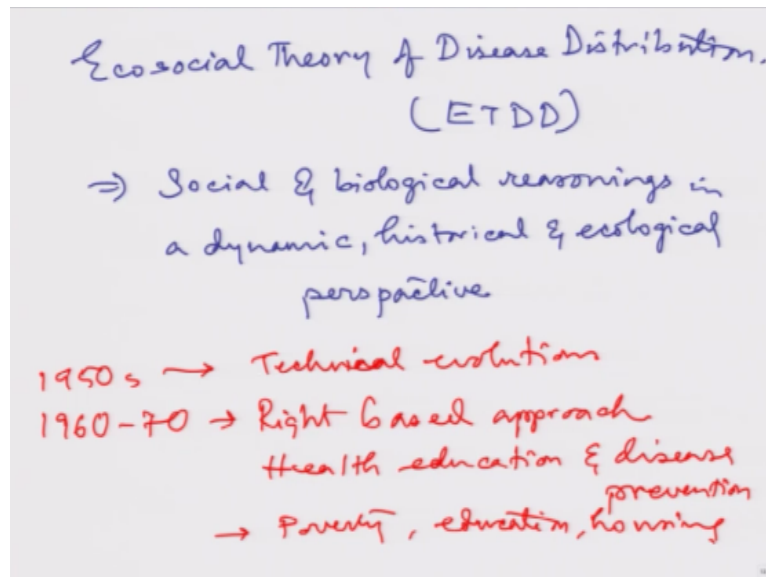 Ecosocial Theory of Disease Distribution.
(ETDD)
⇒ Social & biological reasonings in
a dynamic, historical & ecological
perspactive
1950s → Technical evolutions
1960-70 → Right based approach
Health education & disease
prevention
→ Poverty, education, housing